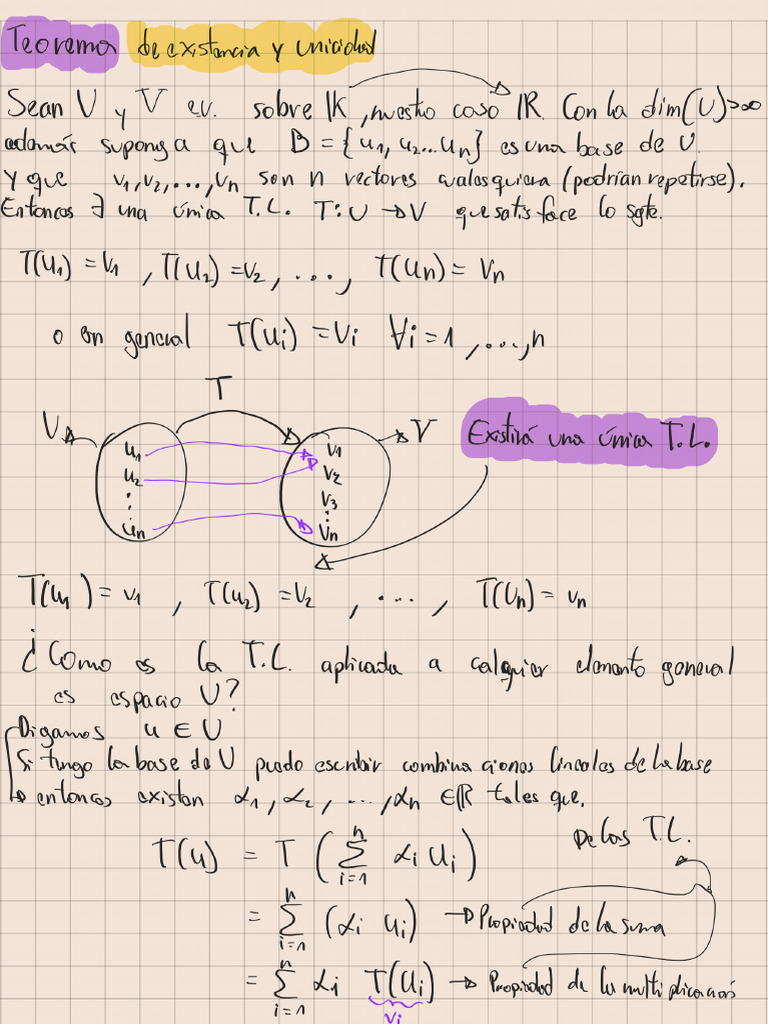 Teorema de existencia y unicidad
Sean U y V e.v. sobre IK, nuestro caso IR. Con la dim(U)>∞
además suponga que B = {u₁, u₂... uₙ} es una base de U.
y que v₁, v₂, ..., vₙ son n vectores cualesquiera (podrían repetirse).
Entonces ∃ una única T.L. T: U → V que satisface lo sgte.
T(u₁) = v₁, T(u₂) = v₂, ..., T(uₙ) = vₙ
o en general T(uᵢ) = vᵢ ∀i = 1, ..., n
T
U V Existirá una única T.L.
u₁ v₁
u₂ v₂
⋮ v₃
⋮
uₙ vₙ
T(u₁) = v₁, T(u₂) = v₂, ..., T(uₙ) = vₙ
¿Como es la T.L. aplicada a calquier elemento general
es espacio U?
Digamos u ∈ U
Si tengo la base de U puedo escribir combinaciones lineales de la base
entonces existen α₁, α₂, ..., αₙ ∈ IR tales que.
T(u) = T (∑ⁿᵢ₌₁ αᵢ uᵢ) De las T.L.
= ∑ⁿᵢ₌₁ (αᵢ uᵢ) → Propiedad de la suma
= ∑ⁿᵢ₌₁ αᵢ T(uᵢ) → Propiedad de la multiplicación
vᵢ